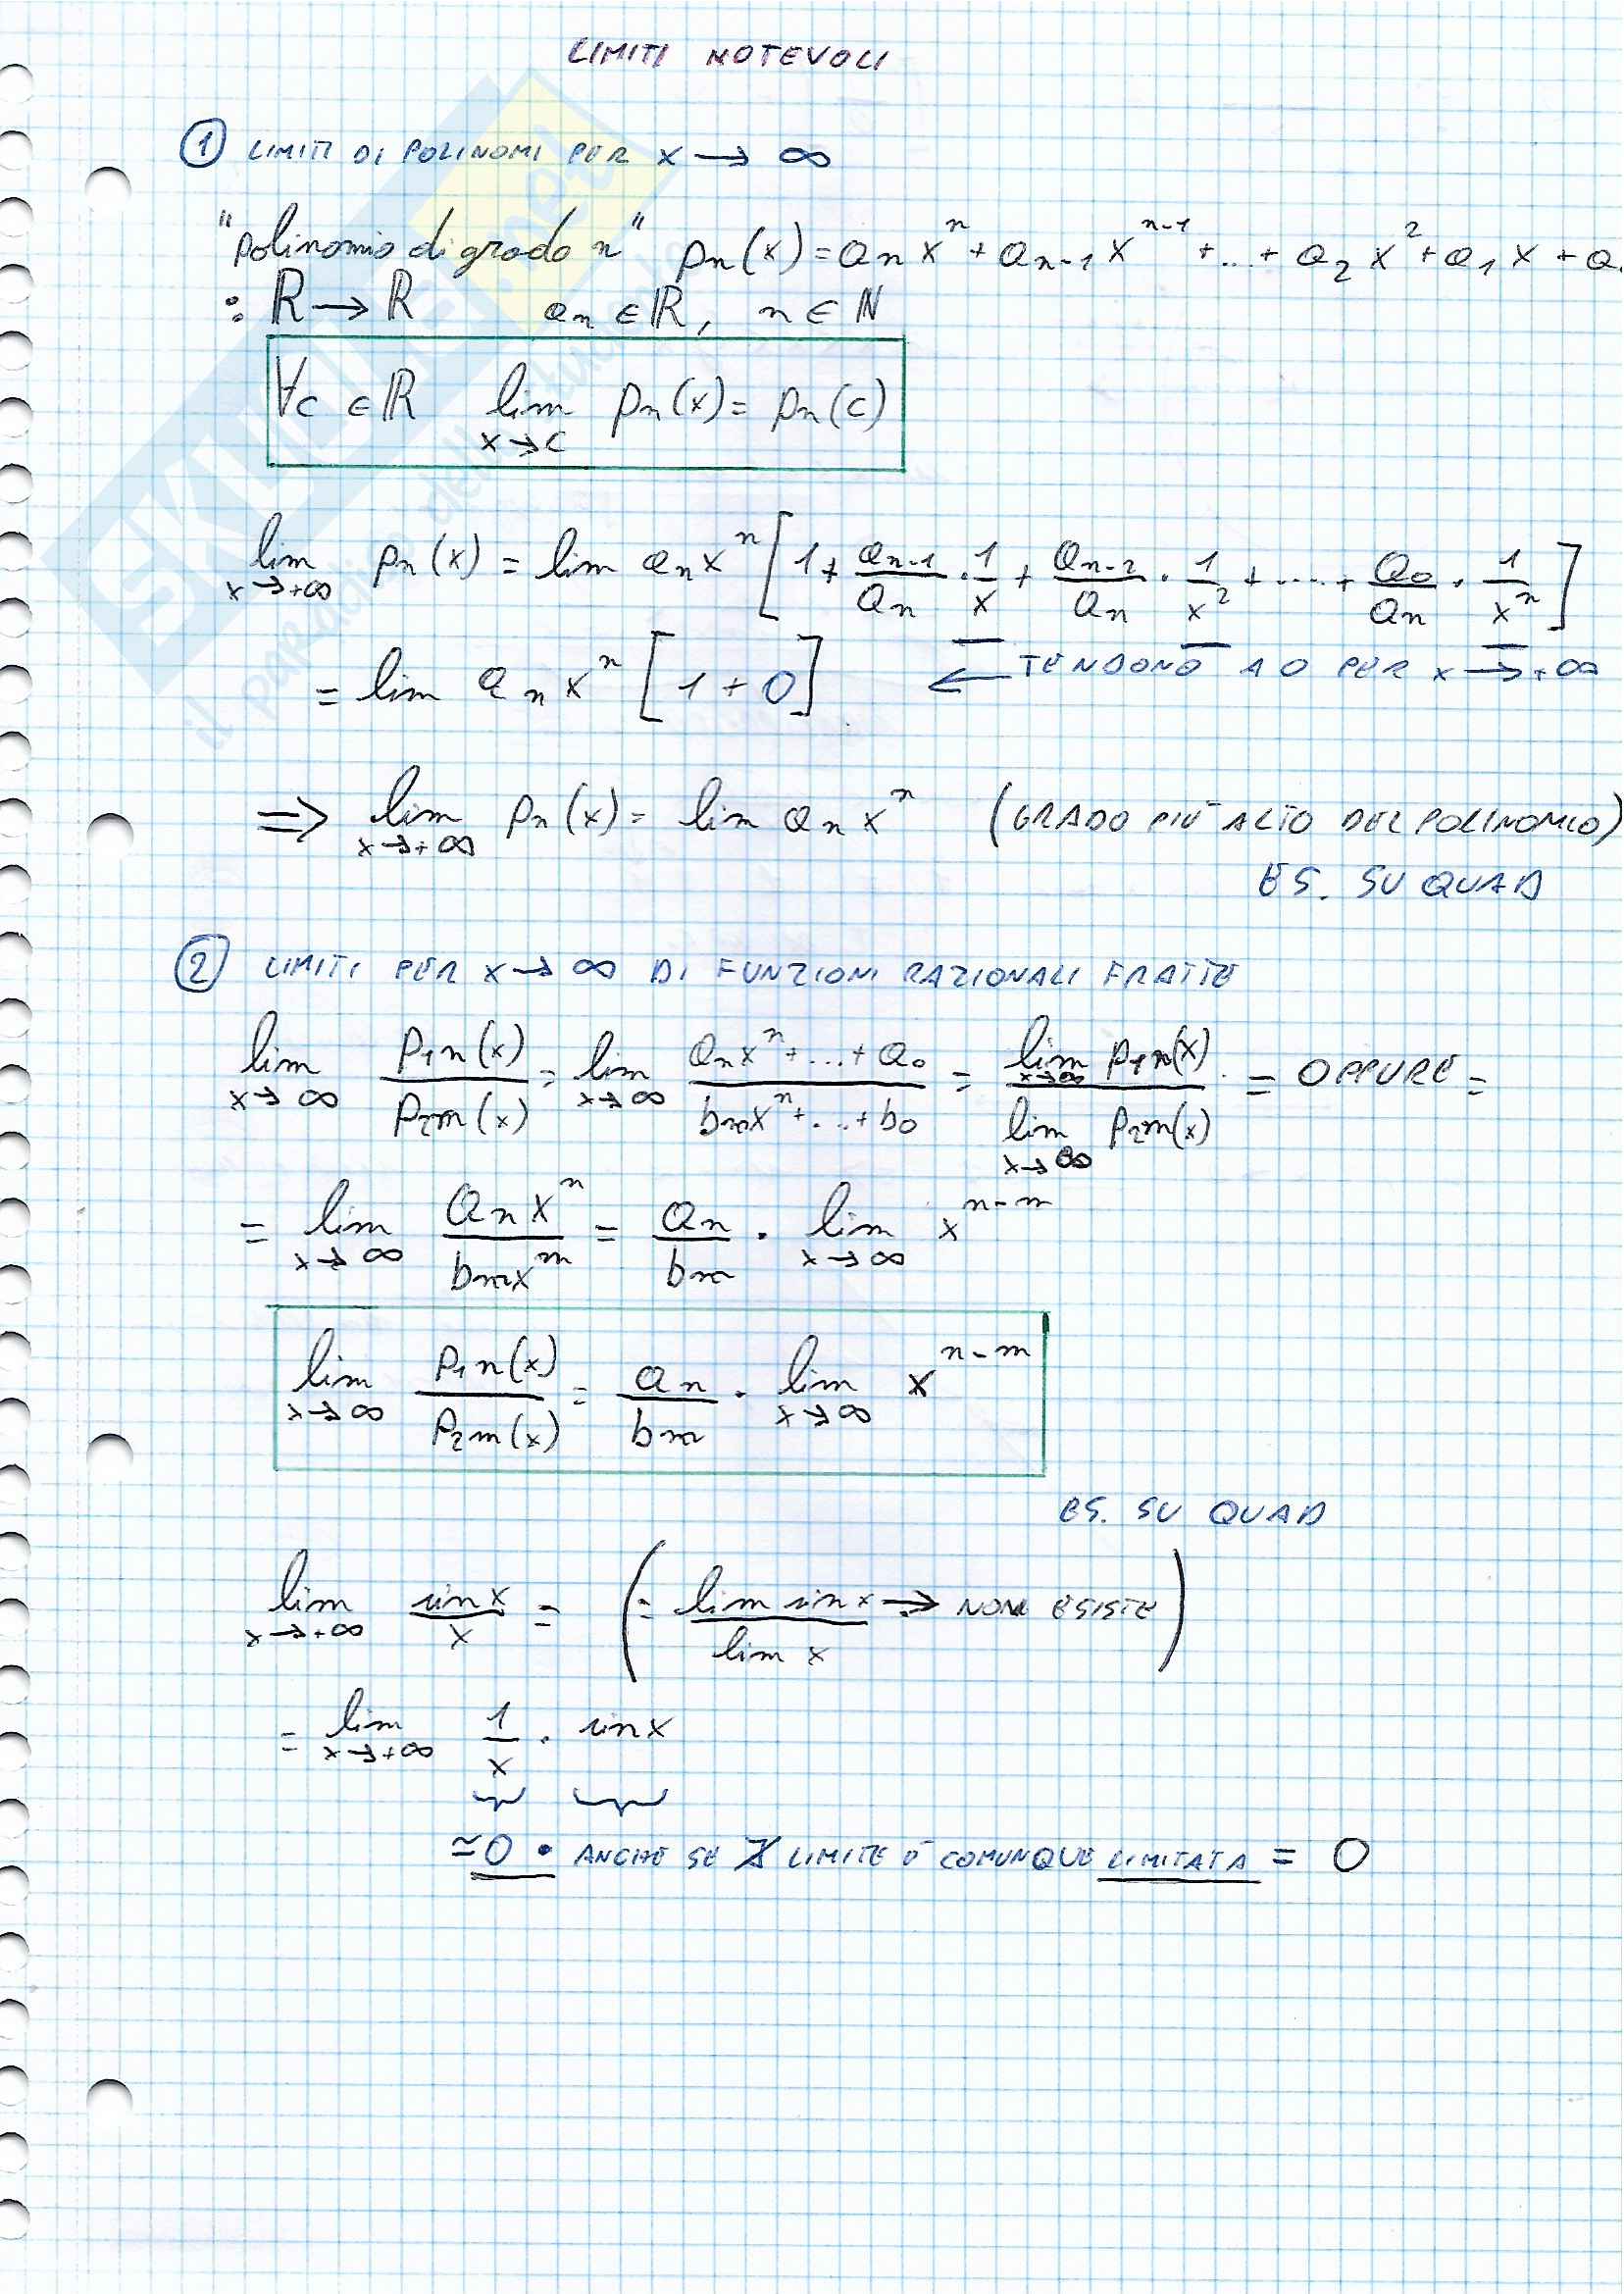 LIMITI NOTEVOLI
① LIMITI DI POLINOMI PER x → ∞
"polinomio di grado n" pn(x) = aₙxⁿ + aₙ₋₁xⁿ⁻¹ + ... + a₂x² + a₁x + a
: ℝ → ℝ aₙ ∈ ℝ, n ∈ ℕ
∀c ∈ ℝ lim x→c pₙ(x) = pₙ(c)
lim x→+∞ pₙ(x) = lim aₙxⁿ [1 + aₙ₋₁/aₙ · 1/x + aₙ₋₂/aₙ · 1/x² + .... + a₀/aₙ · 1/xⁿ]
= lim aₙxⁿ [1 + 0] ← TENDONO A 0 PER x → +∞
⇒ lim x→+∞ pₙ(x) = lim aₙxⁿ (GRADO PIÙ ALTO DEL POLINOMIO)
ES. SU QUAD
② LIMITI PER x → ∞ DI FUNZIONI RAZIONALI FRATTE
lim x→∞ p₁n(x)/p₂m(x) = lim x→∞ (aₙxⁿ + ... + a₀)/(bₘxⁿ + ... + b₀) = lim x→∞ p₁n(x) / lim x→∞ p₂m(x) = OPPURE =
= lim x→∞ aₙxⁿ/bₘxᵐ = aₙ/bₘ · lim x→∞ xⁿ⁻ᵐ
lim x→∞ p₁n(x)/p₂m(x) = aₙ/bₘ · lim x→∞ xⁿ⁻ᵐ
ES. SU QUAD
lim x→+∞ sin x/x = (= lim sin x/lim x → NON ESISTE)
= lim x→+∞ 1/x · sin x
≃ 0 · ANCHE SE ∄ LIMITE È COMUNQUE LIMITATA = 0
SKUOLA.net
il paradiso dello studente